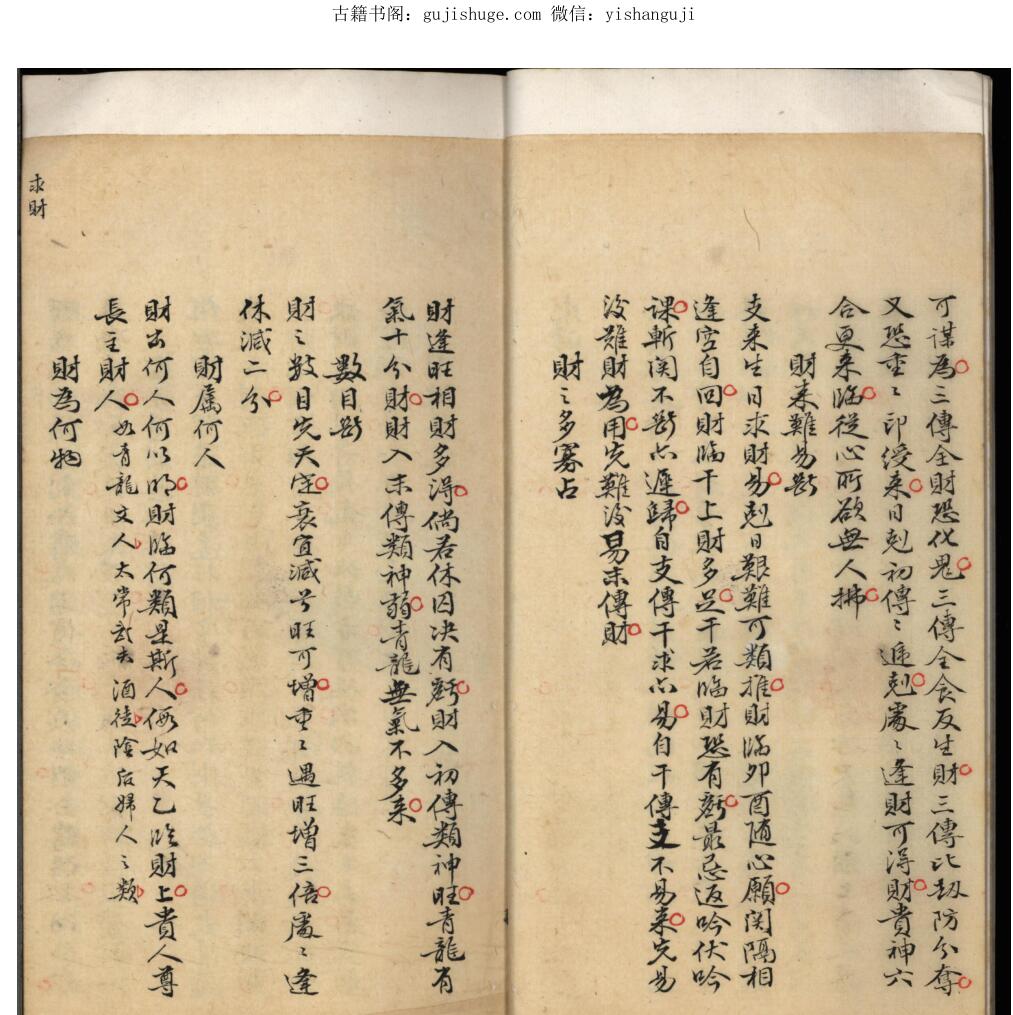 古籍书阁：gujishuge.com 微信：yishanguji
可謀為三傳全財恐化鬼三傳全食反生財三傳比劫防分奪
又恐重〻印綬来日剋初傳〻遞剋處〻逢財可得財貴神六
合更来臨從心所欲無人拂
財来難易斷
支来生日求財易剋日艱難可類推財臨卯酉随心願関隔相
逢空自回財臨干上財多足干若臨財恐有虧最忌返吟伏吟
課斬関不斷亦遲歸自支傳干求亦易自干傳支不易来先易
後難財為用先難後易末傳財
財〻多寡占
財逢旺相財多得倘若休囚决有虧財入初傳類神旺青龍有
氣十分財財入末傳類神弱青龍無氣不多来
數目斷
財〻数目先天定衰宜減兮旺可增重〻遇旺增三倍處〻逢
休減二分
財属何人
財出何人何以明財臨何類是斯人假如天乙臨財上貴人尊
長主財人如青龍文人太常武夫酒徒陰后婦人〻類
財為何物
求財